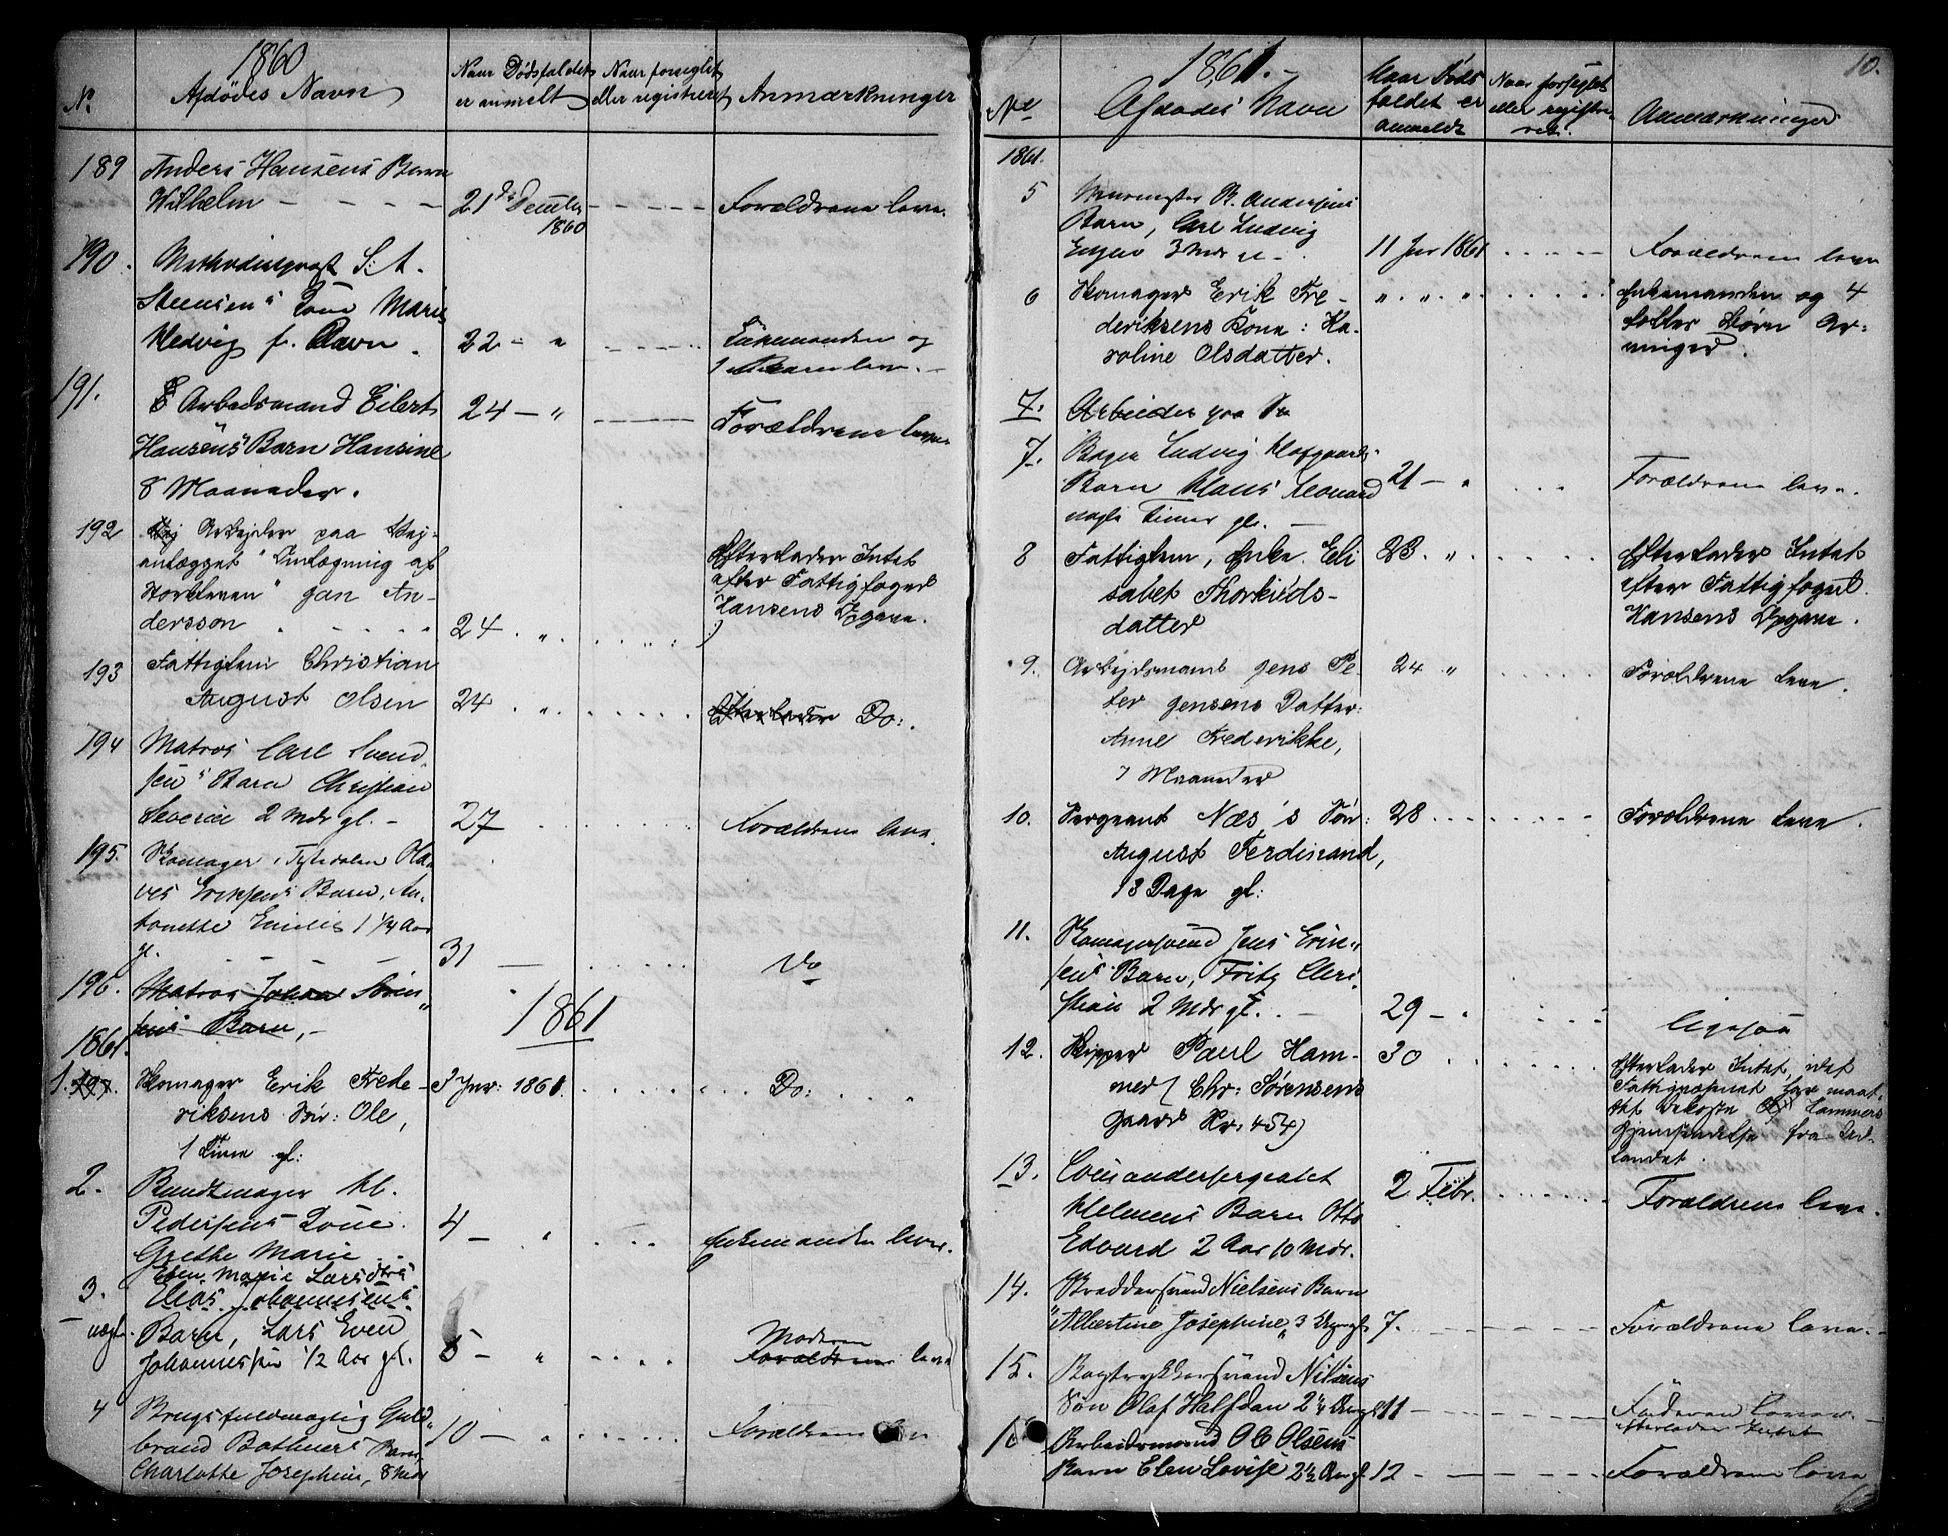 1860
No
Afdødes Navn
Naar Dødsfaldet
er anmelt
Naar forseglet
eller registreret
Anmærkninger
189
Anders Hansens Barn
Wilhelm - - - -
21 de Decmbr
1860
Forældrene leve.
190.
Methodistpræst S. A.
Steensen's Kone Marie
Hedvig f. Ravn.
22 - "
Enkemanden og
1 Barn leve. -
191.
Arbedsmand Eilert
Hansens Barn Hansine
8 Maaneder.
24 - "
Forældrene leve
192
Arbejder paa Vej-
anlægget "Omlægning af
" Jan An-
dersson
24. ".
Efterlader Intet
efter Fattigfoged
Hansens Opgave.
193
Fattiglem Christian
August Olsen
24 ".
Efterlader Do:.
194
Matros Carl Svend
sen's Barn Christian
Severin 2 Mdr gl. -
27
Forældrene leve.
195.
Skomager i Tyskdalen Ola-
ves Eriksens Barn, An-
tonette Emilie 1 1/4 Aar
gl.
31 -
Do
196.
Matros Johan Sören
sens Barn, -
1861
1861.
1. 197.
Skomager Erik Frede-
riksens Søn: Ole,
1 Time gl:
3 Jnr: 1861.
Do:
2.
Bundtmager Kl.
Pedersens Kone
Grethe Marie
4 - "
Enkemanden lever.
Elen Marie Larsdtrs
3.
Elias Johannesens
uægte.
Barn, Lars Even
Johannessen 1/2 Aar gl.
8 - "
Moderen
Forældrene leve
4
Brugsfuldmægtig Guld-
brand Bothners Barn
Charlotte Josephine, 8 Mdr
10 - "
Forældrene
1861. -
10.
No
Afdødes Navn
Naar Døds
faldet er
anmeldt
Naar forseglet
eller registre-
ret.
Anmærkninger
1861.
5
Muurmester R. Andersens
Barn, Carl Ludvig
3 Mdr
11 Jnr 1861
Forældrene leve
6
Skomager Erik Fre-
deriksens Kone: Ka-
roline Olsdatter.
" " "
Enkemanden og 4
fælles Børn Ar-
vinger.
7.
Arbeider paa
7.
Bager Ludvig Hofgaards
Barn Klaus Leonard
nogle Timer gl. -
21 - "
Forældrene leve.
8
Fattiglem, Enke Eli
sabet Thorkilds-
datter
23. "
Efterlader Intet
efter Fattigfoged
Hansens Opgave.
9.
Arbejdsmand Jens Pe-
ter Jensens Datter:
Anne Frederikke,
7 Maaneder
24 "
Forældrene leve.
10.
Sergeant Næs's Søn:
August Ferdinand,
13 Dage gl:
28
Forældrene leve.
11.
Skomagersvend Jens Erik-
sens Barn, Fritz Chri-
stian 2 Mdr gl. -
29 - "
ligesaa
12.
Skipper Paul Ham-
mer (Chr: Sørensens
Gaard Nr. 454)
30
Efterlader Intet, idet
Fattigvæsenet har maat-
tet bekoste Hammers
Hjemsendelse fra Ud-
landet.
13.
Commandersergeant
Helmers Barn Otto
Edvard 2 Aar 10 Mdr.
2 Febr.
Forældrene leve.
14.
Nielsens Barn
"Albertine Josephine" 3
7.
Forældrene leve. -
15.
Bogtrykkersvend Nilsens
Søn Olaf Halfdan 2 1/4 Aar gl
11 -
Faderen lever -
efterlader Intet
16
Arbeidsmand O C Olsens
Barn Elen Lovise 2 1/2 Aar gl
12 -
Forældrene leve